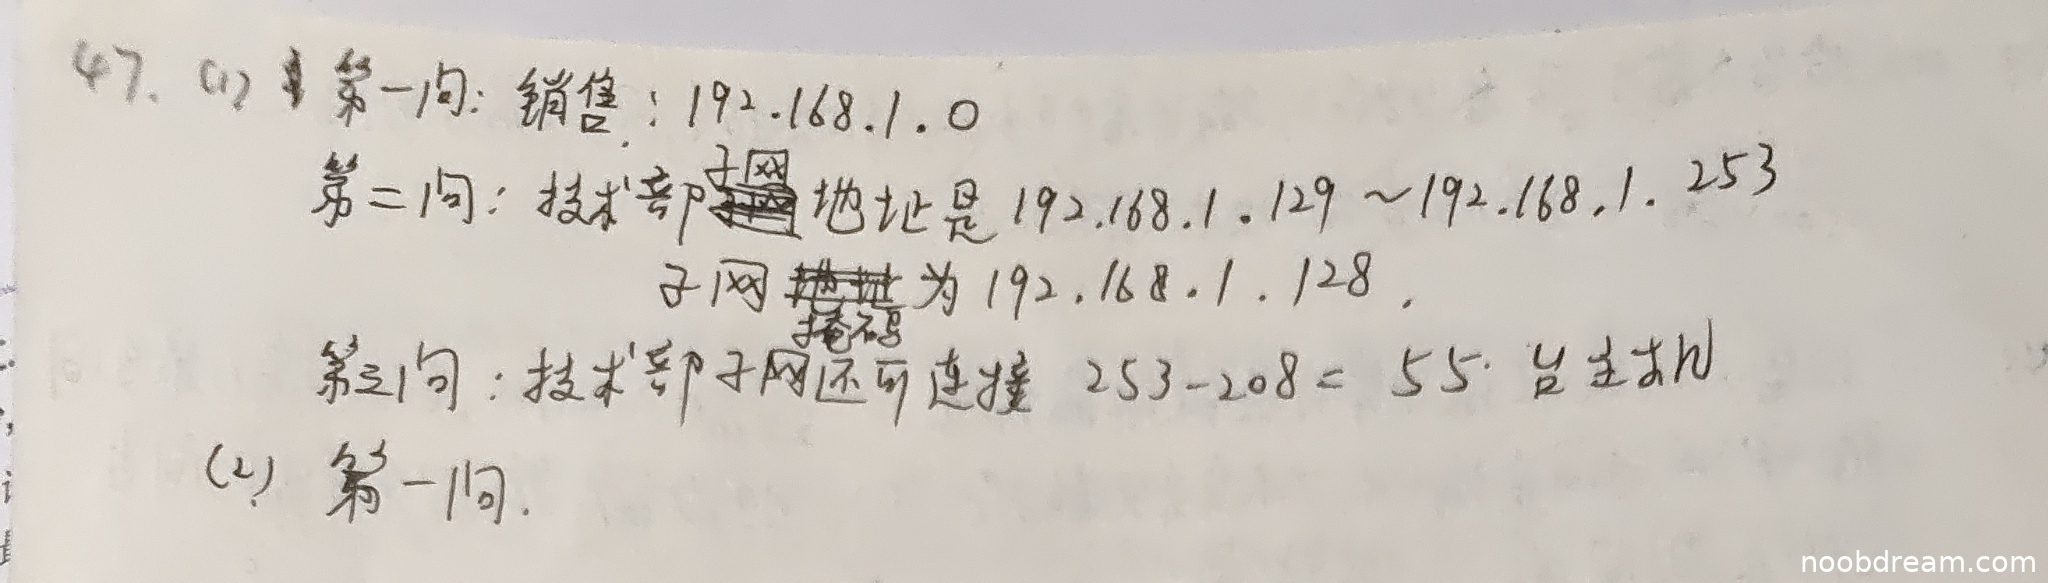 47. (1) 第一问: 销售: 192.168.1.0
第二问: 技术部子网地址是 192.168.1.129 ~ 192.168.1.253
子网掩码为 192.168.1.128.
第三问: 技术部子网还可连接 253-208= 55 台主机
(2) 第一问.
noobdream.com